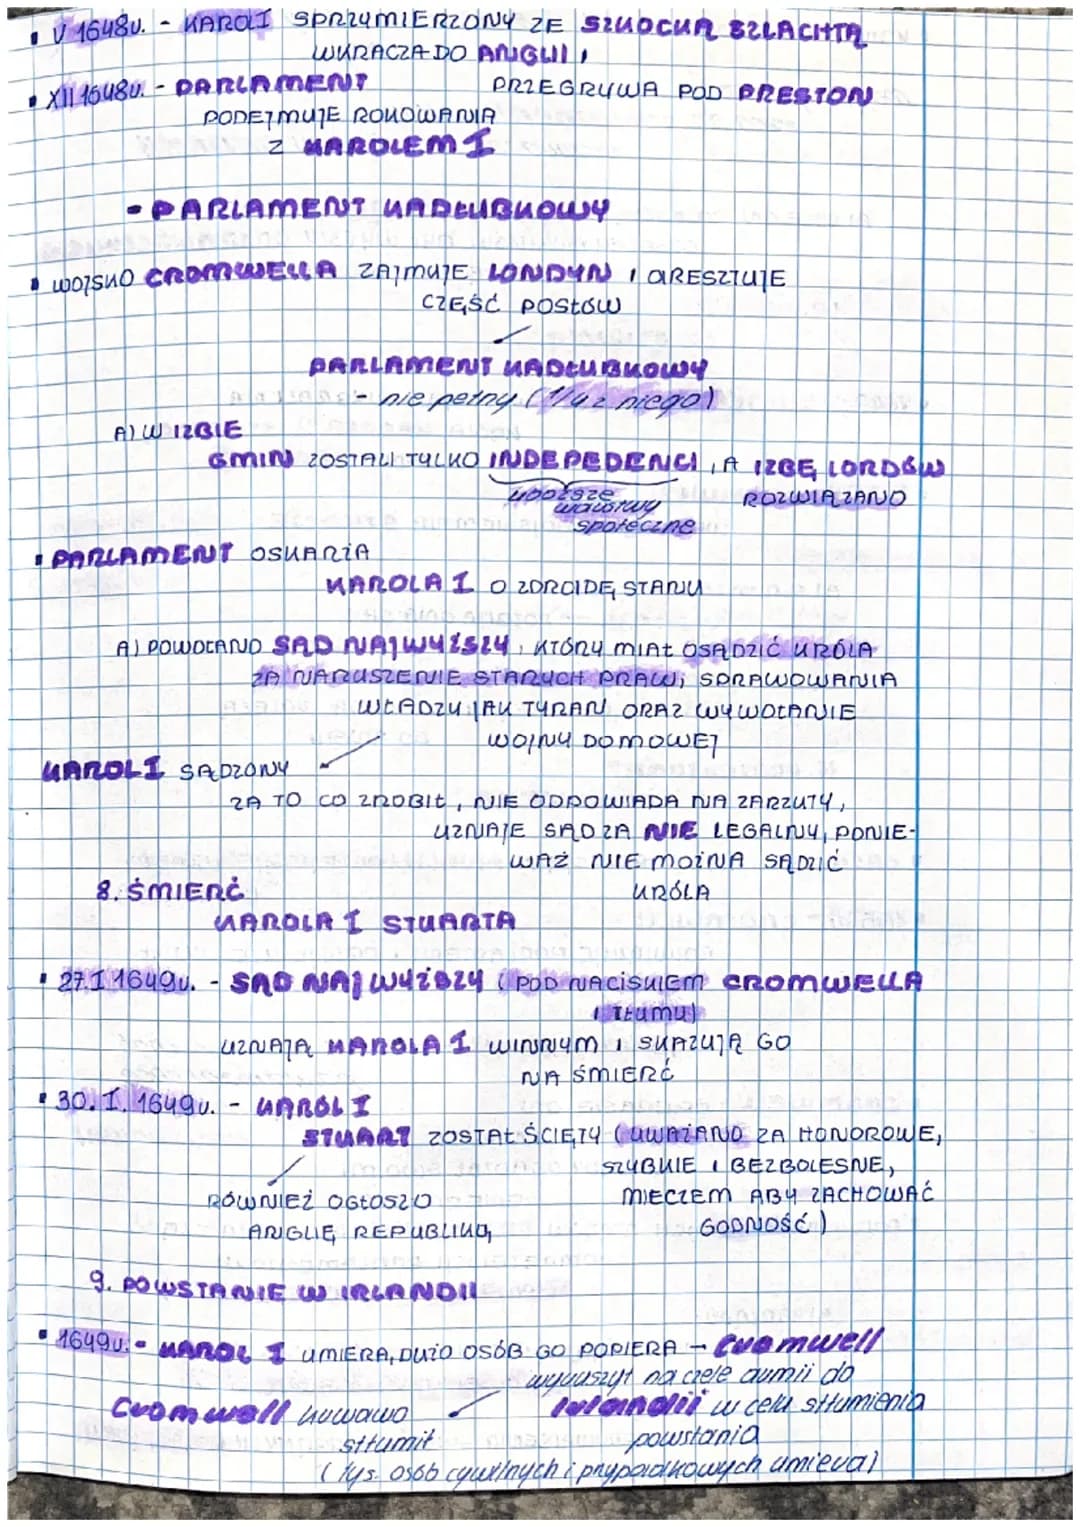 ▪ V 1648r. - KAROL I SPRZYMIERZONY ZE SZKOCKĄ SZLACHTĄ
WKRACZA DO ANGLII,
PRZEGRYWA POD PRESTON
▪ XII 1648r. - PARLAMENT
PODEJMUJE ROKOWANIA
Z KAROLEM I
- PARLAMENT KADŁUBKOWY
▪ WOJSKO CROMWELLA ZAJMUJE LONDYN I ARESZTUJE
CZĘŚĆ POSŁÓW
PARLAMENT KADŁUBKOWY
- nie pełny (1/4 z niego)
A) W IZBIE
GMIN ZOSTALI TYLKO INDEPEDENCI, A IZBĘ LORDÓW
ROZWIĄZANO
uboższe
warstwy
społeczne
▪ PARLAMENT OSKARŻA
KAROLA I O ZDRAJDĘ STANU
A) POWOŁANO SĄD NAJWYŻSZY, KTÓRY MIAŁ OSĄDZIĆ KRÓLA
ZA NARUSZENIE STARYCH PRAW, SPRAWOWANIA
WŁADZY JAK TYRAN ORAZ WYWOŁANIE
WOJNY DOMOWEJ
KAROL I SĄDZONY
ZA TO CO ZROBIŁ, NIE ODPOWIADA NA ZARZUTY,
UZNAJE SĄD ZA NIE LEGALNY, PONIE-
WAŻ NIE MOŻNA SĄDZIĆ
KRÓLA
8. ŚMIERĆ
KAROLA I STUARTA
▪ 27.I 1649r. - SĄD NAJWYŻSZY (POD NACISKIEM CROMWELLA
I TŁUMU)
UZNAJĄ KAROLA I WINNYM I SKAZUJĄ GO
NA ŚMIERĆ
▪ 30.I.1649r. - KAROL I
STUART ZOSTAŁ ŚCIĘTY (UWAŻANO ZA HONOROWE,
SZYBKIE I BEZBOLESNE,
MIECZEM ABY ZACHOWAĆ
GODNOŚĆ)
RÓWNIEŻ OGŁOSZO
ANGLIĘ REPUBLIKĄ
9. POWSTANIE W IRLANDII
▪ 1649r. - KAROL I UMIERA, DUŻO OSÓB GO POPIERA - Cromwell
wyruszył na czele armii do
Irlandii w celu stłumienia
powstania
Cromwell krwawo
stłumił
(tys. osób cywilnych i przypadkowych umiera)